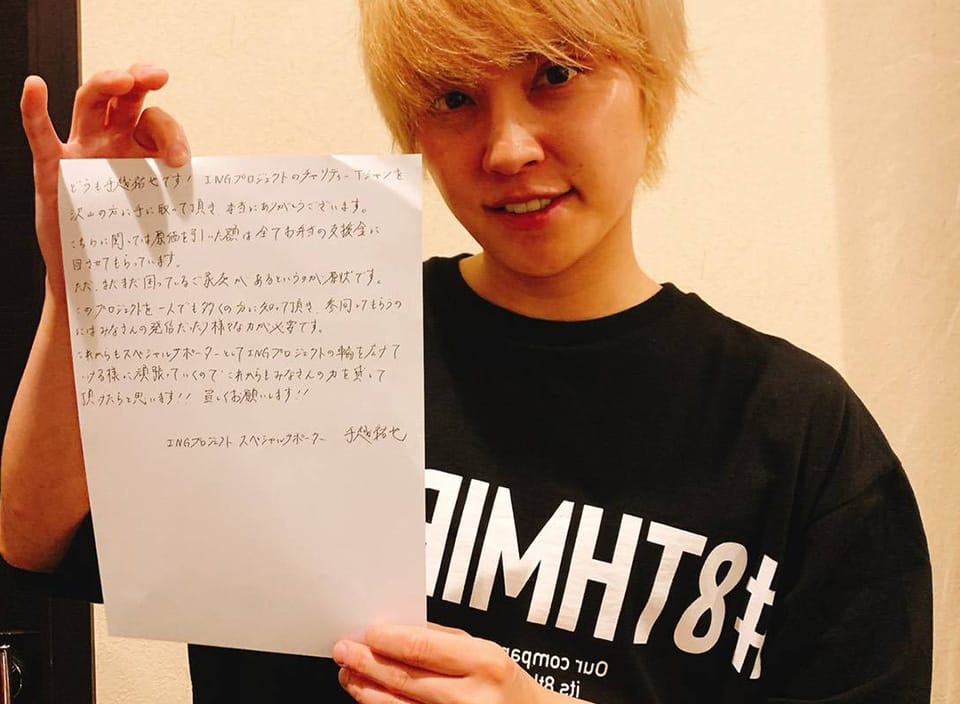 どうも手越祐也です! INGプロジェクトのチャリティーTシャツを
沢山の方に手に取って頂き、本当にありがとうございます。
こちらに関しては原価を引いた額は全てお弁当の支援金に
回させてもらっています。
ただ、まだまだ困っているご家庭があるというのが現状です。
このプロジェクトを一人でも多くの方に知って頂き、参同してもらうの
にはみなさんの発信だったり様々な力が必要です。
これからもスペシャルサポーターとしてINGプロジェクトの輪を広げて
いける様に頑張っていくので、これからもみなさんの力を貸して
頂けたらと思います!! 宜しくお願いします!!
INGプロジェクト スペシャルサポーター 手越祐也
#8THMIR
Our compan
its 8th